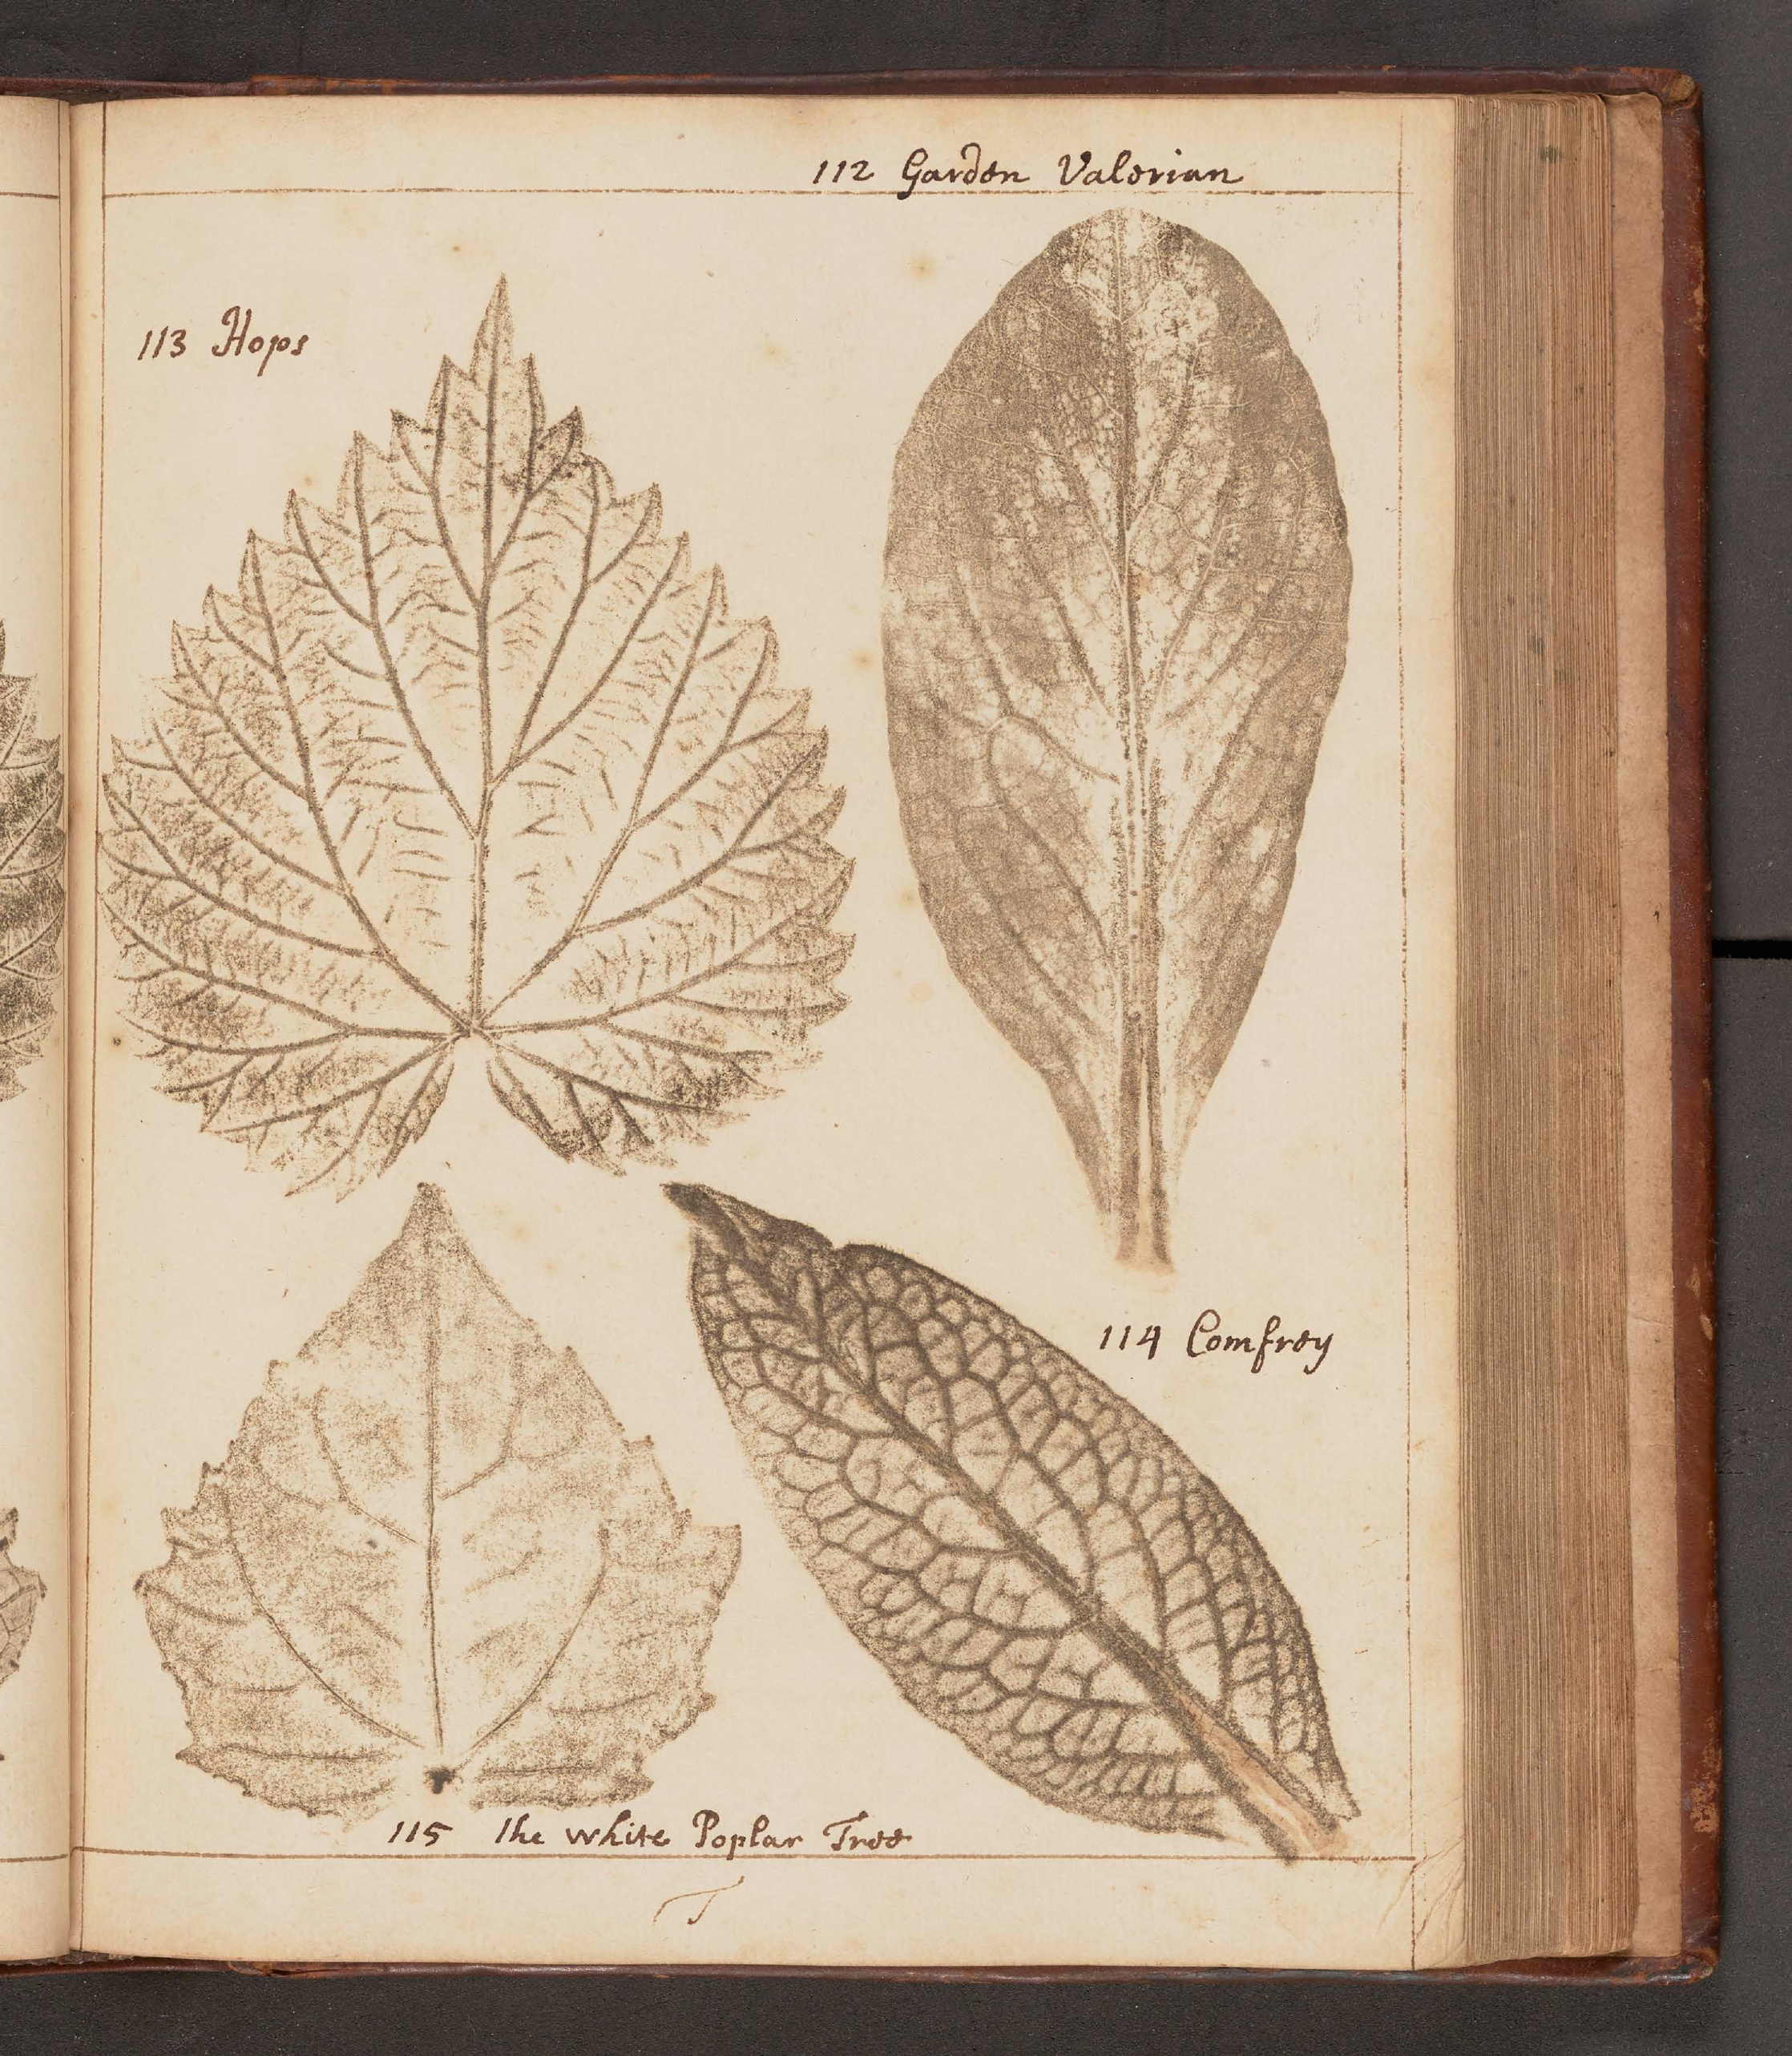 112 Garden Valerian
113 Hops
114 Comfrey
115 The white Poplar Tree
T